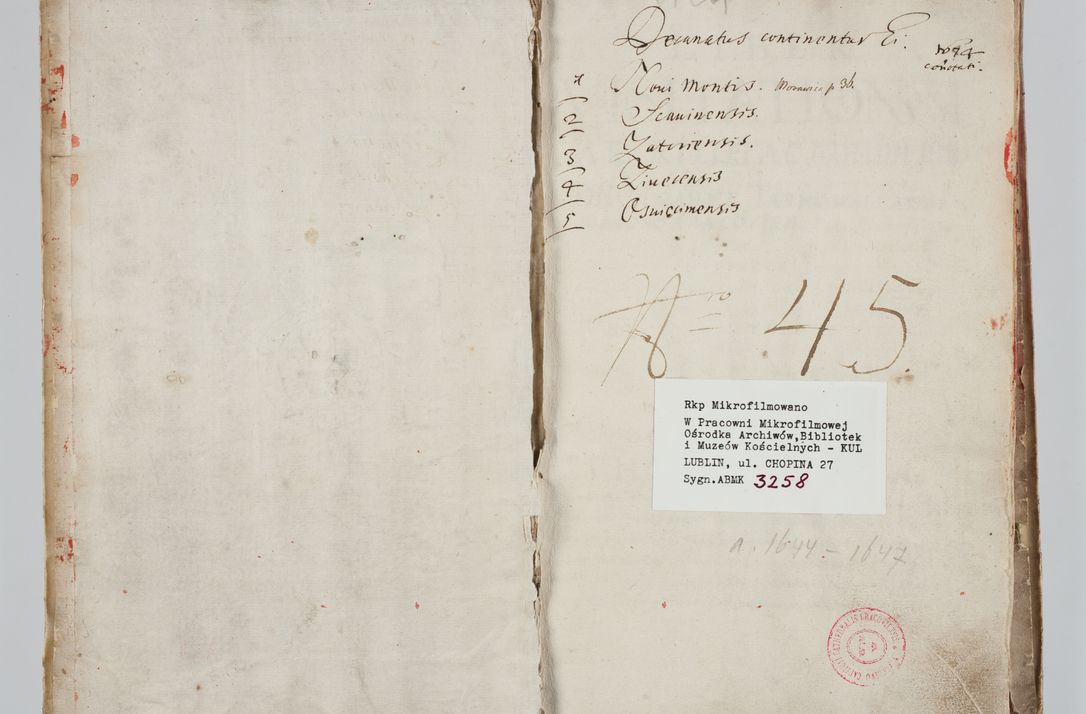 Decanatus continentur Ei.
1644
conotati.
1 Noui Montis. Morawica p 36.
2 Scauinensis.
3 Zatoriensis.
4 Ziuecensis
5 Osuiecimensis
Nro = 45.
Rkp Mikrofilmowano
W Pracowni Mikrofilmowej
Ośrodka Archiwów,Bibliotek
i Muzeów Kościelnych - KUL
LUBLIN, ul. CHOPINA 27
Sygn.ABMK 3258
a. 1644 - 1647